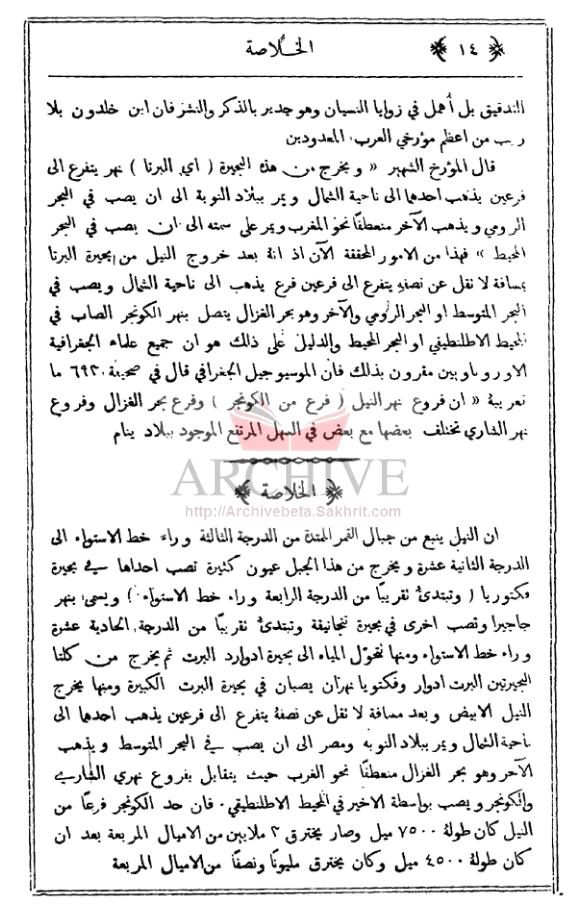 ﴿ ١٤ ﴾ الخلاصة
التدقيق بل أهمل في زوايا النسيان وهو جدير بالذكر والنشر فان ابن خلدون بلا
ريب من اعظم مؤرخي العرب المعدودين
قال المؤرخ الشهير « ويخرج من هذه البحيرة ( اي البرتا ) نهر يتفرع الى
فرعين يذهب احدها الى ناحية الشمال ويمر ببلاد النوبة الى ان يصب في البحر
الرومي ويذهب الآخر منعطفًا نحو المغرب ويمر على سمته الى ان يصب في البحر
المحيط » فهذا من الامور المحققة الآن اذ انهُ بعد خروج النيل من بحيرة البرتا
بمسافة لا نقل عن نصفه يتفرع الى فرعين فرع يذهب الى ناحية الشمال ويصب في
البحر المتوسط او البحر الرومي والآخر وهو بحر الغزال يتصل بنهر الكونجر الصاب في
المحيط الاطلنطيقي او البحر المحيط والدليل على ذلك هو ان جميع علماء الجغرافية
الاوروباويين مقرون بذلك فان الموسيو جيل الجغرافي قال في صحيفة ٦٩٣٠ ما
تعريبهُ « ان فروع نهر النيل ( فرع من الكونجر ) وفرع بحر الغزال وفروع
نهر الشاري تختلف بعضها مع بعض في السهل المرتفع الموجود ببلاد ينام
ARCHIVE
﴿ الخلاصة ﴾
http://Archivebeta.Sakhrit.com
ان النيل ينبع من جبال القمر الممتدة من الدرجة الثالثة وراء خط الاستواء الى
الدرجة الثانية عشرة ويخرج من هذا الجبل عيون كثيرة تصب احداها في بحيرة
فكتوريا ( وتبتدئ نقريبًا من الدرجة الرابعة وراء خط الاستواء ) ويسمى بنهر
جاجيرا وتصب اخرى في بحيرة تنجانيقة وتبتدئ نقريبًا من الدرجة الحادية عشرة
وراء خط الاستواء ومنها نتحوّل المياه الى بحيرة ادوارد البرت ثم يخرج من كلتا
البحيرتين البرت ادوار وفكتويا نهران يصبان في بحيرة البرت الكبيرة ومنها يخرج
النيل الابيض وبعد مسافة لا نقل عن نصفه يتفرع الى فرعين يذهب احدها الى
ناحية الشمال ويمر ببلاد النوبه ومصر الى ان يصب في البحر المتوسط ويذهب
الآخر وهو بحر الغزال منعطفًا نحو الغرب حيث يتقابل بفروع نهري الشاري
والكونجر ويصب بواسطة الاخير في المحيط الاطلنطيقي . فان حد الكونجر فرعًا من
النيل كان طولهُ ٧٥٠٠ ميل وصار يخترق ٣ ملايين من الاميال المربعة بعد ان
كان طولهُ ٤٥٠٠ ميل وكان يخترق مليونًا ونصفًا من الاميال المربعة